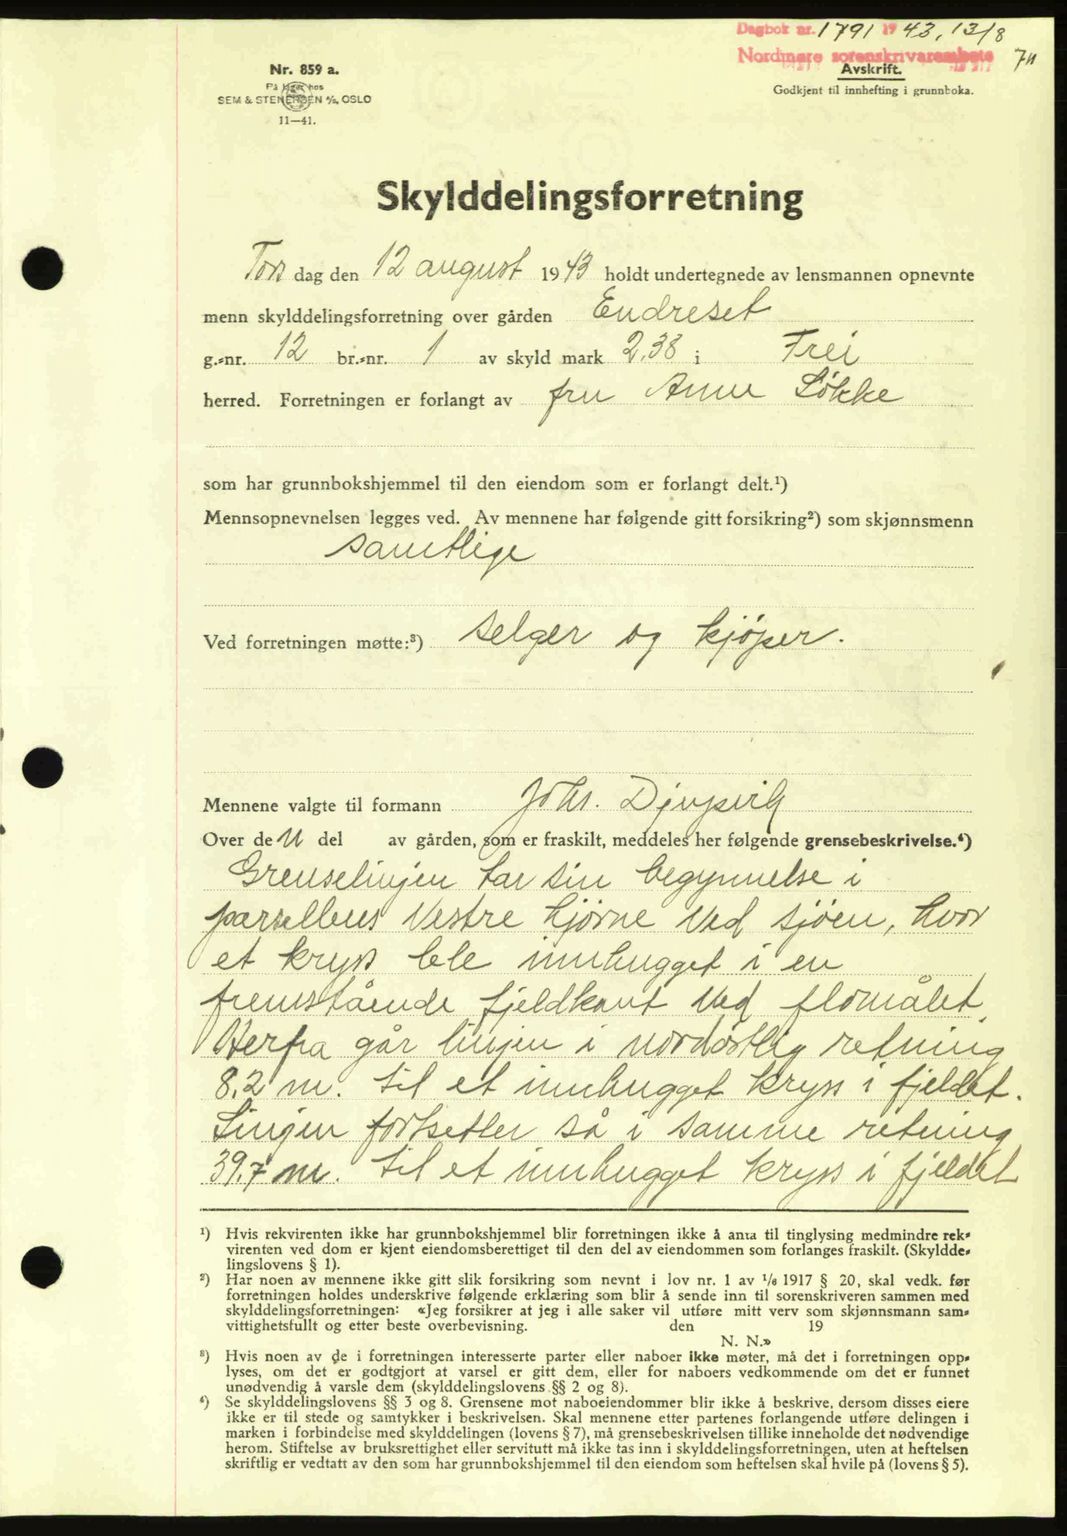 Dagbok nr. 1791 19 43, 13/8
Nordmøre sorenskriverembete
Nr. 859 a.
På lager hos
SEM & STENERSEN A/S, OSLO
11—41.
Avskrift.
Godkjent til innhefting i grunnboka.
Skylddelingsforretning
Tors dag den 12 august 1943 holdt undertegnede av lensmannen opnevnte
menn skylddelingsforretning over gården Endreset
g.-nr. 12 br.-nr. 1 av skyld mark 2.38 i Frei
herred. Forretningen er forlangt av fru Anne Løkke
som har grunnbokshjemmel til den eiendom som er forlangt delt.¹)
Mennsopnevnelsen legges ved. Av mennene har følgende gitt forsikring²) som skjønnsmenn
samtlige
Ved forretningen møtte:³) selger og kjöper.
Mennene valgte til formann Johs. Djupvik
Over den del av gården, som er fraskilt, meddeles her følgende grensebeskrivelse.⁴)
Grenselinjen tar sin begynnelse i
parsellens vestre hjörne ved sjöen, hvor
et kryss ble innhugget i en
fremstående fjeldkant ved flomålet.
Herfra går linjen i nordöstlig retning
8.2 m. til et innhugget kryss i fjeldet.
Linjen fortsetter så i samme retning
39.7 m. til et innhugget kryss i fjeldet
¹) Hvis rekvirenten ikke har grunnbokshjemmel blir forretningen ikke å anta til tinglysing medmindre rek-
virenten ved dom er kjent eiendomsberettiget til den del av eiendommen som forlanges fraskilt. (Skyldde-
lingslovens § 1).
²) Har noen av mennene ikke gitt slik forsikring som nevnt i lov nr. 1 av 1/6 1917 § 20, skal vedk. før
forretningen holdes underskrive følgende erklæring som blir å sende inn til sorenskriveren sammen med
skylddelingsforretningen: «Jeg forsikrer at jeg i alle saker vil utføre mitt verv som skjønnsmann sam-
vittighetsfullt og etter beste overbevisning. den 19
N. N.»
³) Hvis noen av de i forretningen interesserte parter eller naboer ikke møter, må det i forretningen opp-
lyses, om det er godtgjort at varsel er gitt dem, eller for naboers vedkommende om det er funnet
unødvendig å varsle dem (skylddelingslovens §§ 2 og 8).
⁴) Se skylddelingslovens §§ 3 og 8. Grensene mot naboeiendommer blir ikke å beskrive, dersom disses eiere
ikke er til stede og samtykker i beskrivelsen. Skal mennene etter partenes forlangende utføre delingen i
marken i forbindelse med skylddelingen (lovens § 7), må grensebeskrivelsen tillike inneholde det nødvendige
herom. Stiftelse av bruksrettighet eller servitutt må ikke tas inn i skylddelingsforretningen, uten at heftelsen
skriftlig er vedtatt av den som har grunnbokshjemmel til den eiendom som heftelsen skal hvile på (lovens § 5).